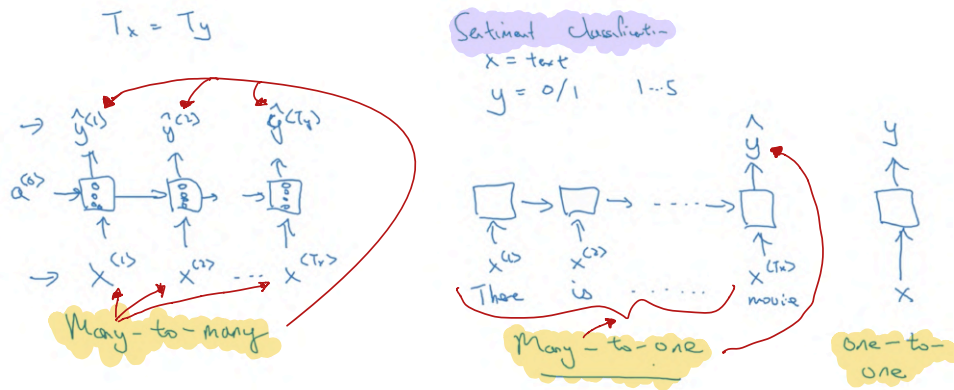 Tx = Ty
ŷ<1> ŷ<2> ŷ<Ty>
a<0>
x<1> x<2> ... x<Tx>
Many-to-many
Sentiment Classification
x = text
y = 0/1 1...5
ŷ
x<1> x<2> x<Tx>
There is ...... movie
Many-to-one
y
x
one-to-
one